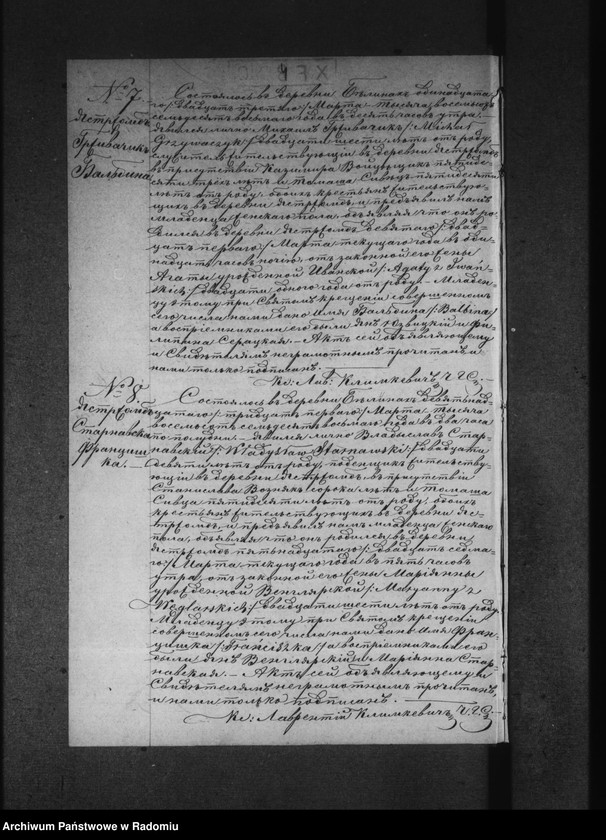 № 7.
Ястржомбъ
Гржывачикъ
Бальбина
Состоялось въ деревни Бѣлинахъ одинадцата-
го /:двадцать третьяго:/ Марта тысяча восемьсотъ
семьдесятъ восьмаго года въ десять часовъ утра.
Явился лично Михаилъ Гржывачикъ /:Michał
Grzywaczyk:/ двадцати шести лѣтъ отъ роду,
жительствующій въ деревни Ястржомбъ
въ присутствіи Казимира пятиде-
сяти трехъ лѣтъ и Томаша Сивца пятидесяти
лѣтъ отъ роду, обоихъ крестьянъ жительствую-
щихъ въ деревни Ястржомбъ и предъявилъ намъ
младенца женскаго пола объявляя что онъ ро-
дился въ деревни Ястржомбъ девятаго /:двад-
цать перваго:/ Марта текущаго года въ оди-
надцать часовъ ночью, отъ законной его жены
Агаты урожденной Иванской /:Agaty z Iwań-
skich:/ двадцати одного года отъ роду. – Младен-
цу этому при Святымъ крещеніи совершенномъ
сего числа нами дано имя Бальбина /:Balbina:/
а воспріемниками его были Янъ и Фи-
липина Серацкая. – Актъ сей объявляющему
и Свидѣтелямъ неграмотнымъ прочитанъ и
нами только подписанъ.
Кс: Лав: Климкевичъ Ч. Г. С.
№ 8.
Ястржомбъ
Старнавска
Францишка. –
Состоялось въ деревни Бѣлинахъ девятнад-
цатаго /:тридцать перваго:/ Марта тысяча
восемьсотъ семьдесятъ восьмаго года въ два часа
по полудни. – Явился лично Владыславъ Стар-
навскій /:Władysław Starnawski:/ двадцати
девяти лѣтъ отъ роду, поденщикъ жительству-
ющій въ деревни Ястржомбъ въ присутствіи
Станислава Вознякъ сорока лѣтъ и Томаша
Сивца пятидесяти лѣтъ отъ роду, обоихъ
крестьянъ жительствующихъ въ деревни Яс-
тржомбъ, и предъявилъ намъ младенца женскаго
пола, объявляя что онъ родился въ деревни
Ястржомбъ пятьнадцатаго /:двадцать седма-
го:/ Марта текущаго года въ пять часовъ
утра, отъ законной его жены Маріянны
урожденной Венглярской /:Maryanny z
Węglarskich:/ двадцати шести лѣтъ отъ роду.
Младенцу этому при Святомъ крещеніи
совершенномъ сего числа нами дано имя Фран-
цишка /:Franciszka:/ а воспріемниками его
были Янъ Венглярскій и Маріянна Стар-
навская. – Актъ сей объявляющему и
Свидѣтелямъ неграмотнымъ прочитанъ
и нами только подписанъ. –
Кс: Лаврентій Климкевичъ Ч. Г. С.
Archiwum Państwowe w Radomiu